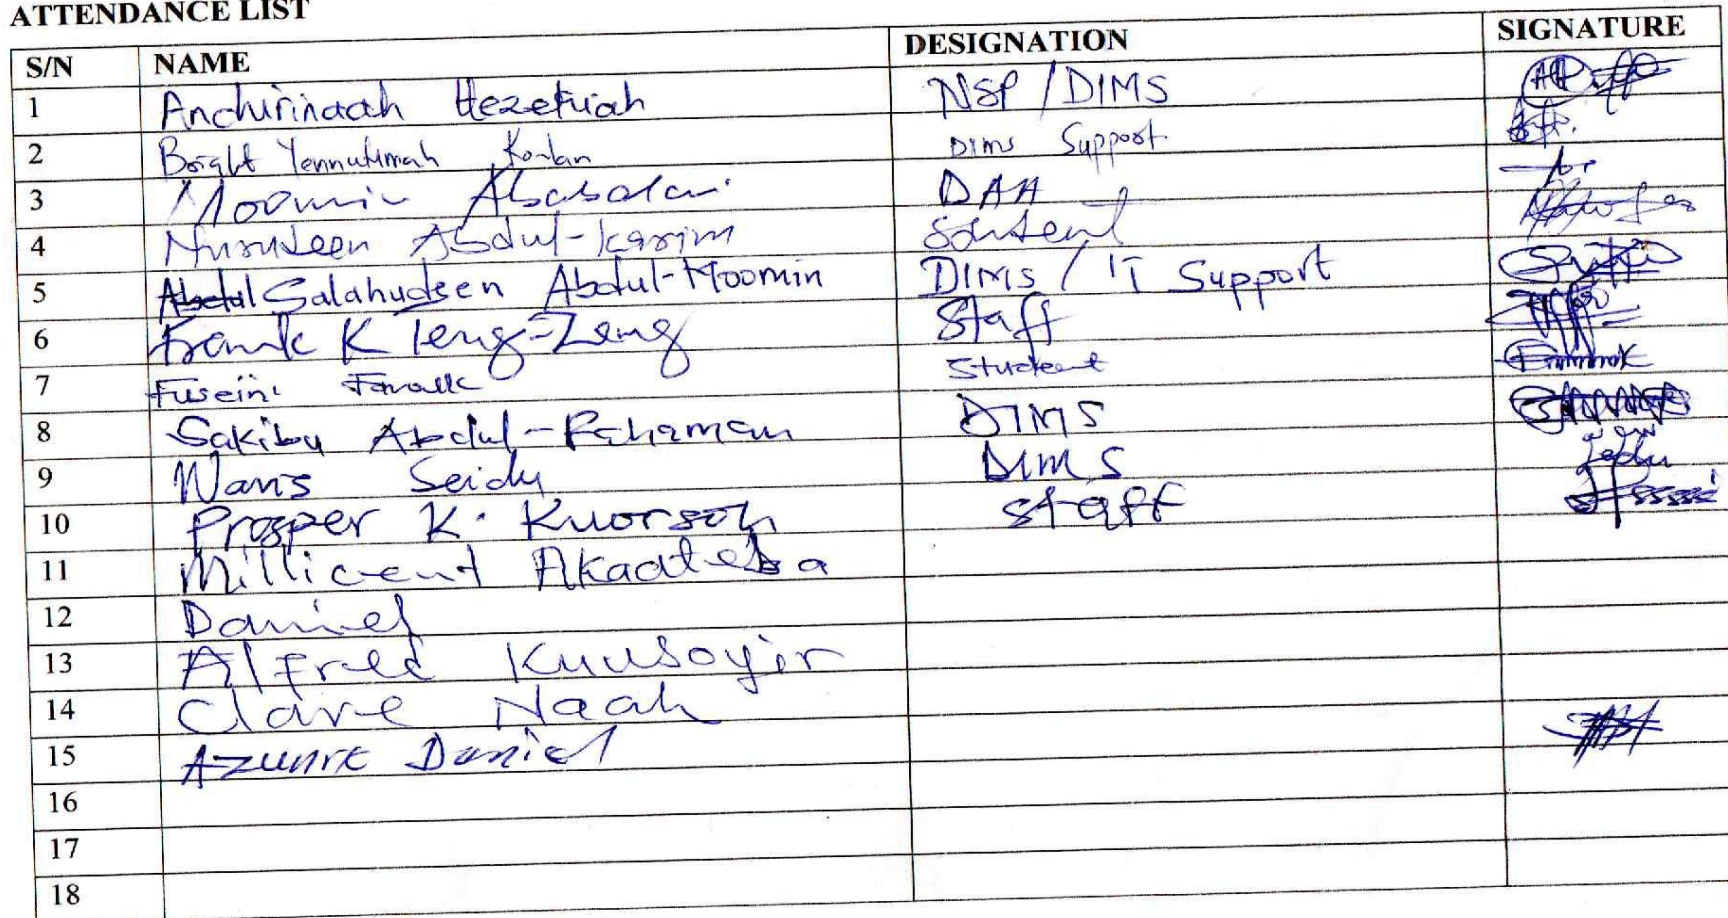 ATTENDANCE LIST
S/N NAME DESIGNATION SIGNATURE
1 Anchirinaah Hezekiah NSP / DIMS
2 Bright Yennutimah Konlan DIMS Support
3 Moomin Ababalai DAA
4 Nurudeen Abdul-karim
5 Salahudeen Abdul-Moomin DIMS / IT Support
6 Frank K Teng-Zeng Staff
7 Fuseini Farouk Student
8 Sakibu Abdul-Rahaman DIMS
9 Waris Seidu DIMS
10 Prosper K. Kuorsoh staff
11 Millicent Akaateba
12 Daniel
13 Alfred Kuusoyir
14 Clare Naah
15 Azunre Daniel
16
17
18